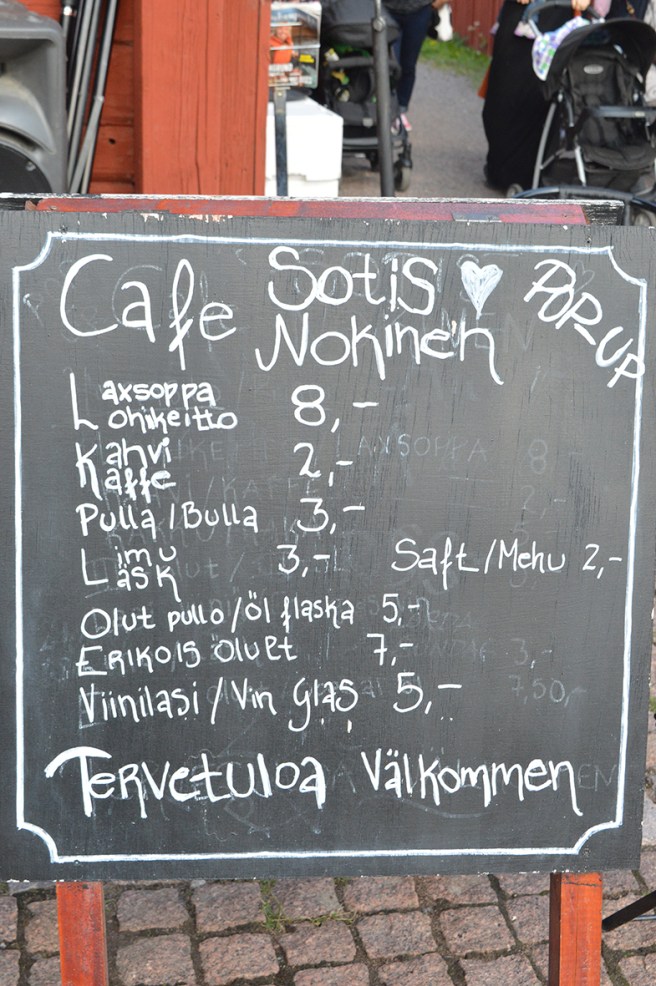 Cafe Sotis ♡ POP-UP
Nokinen
Laxsoppa 8,-
Lohikeitto
Kahvi 2,-
Kaffe
Pulla/Bulla 3,-
Limu 3,- Saft/Mehu 2,-
Läsk
Olut pullo/Öl flaska 5,-
Erikois öluet 7,-
Viinilasi/Vin Glas 5,-
Tervetuloa Välkommen